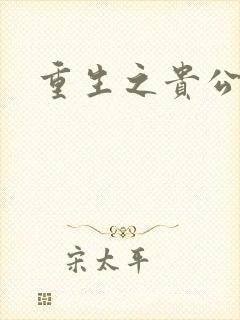 重生之貴公
宋太平